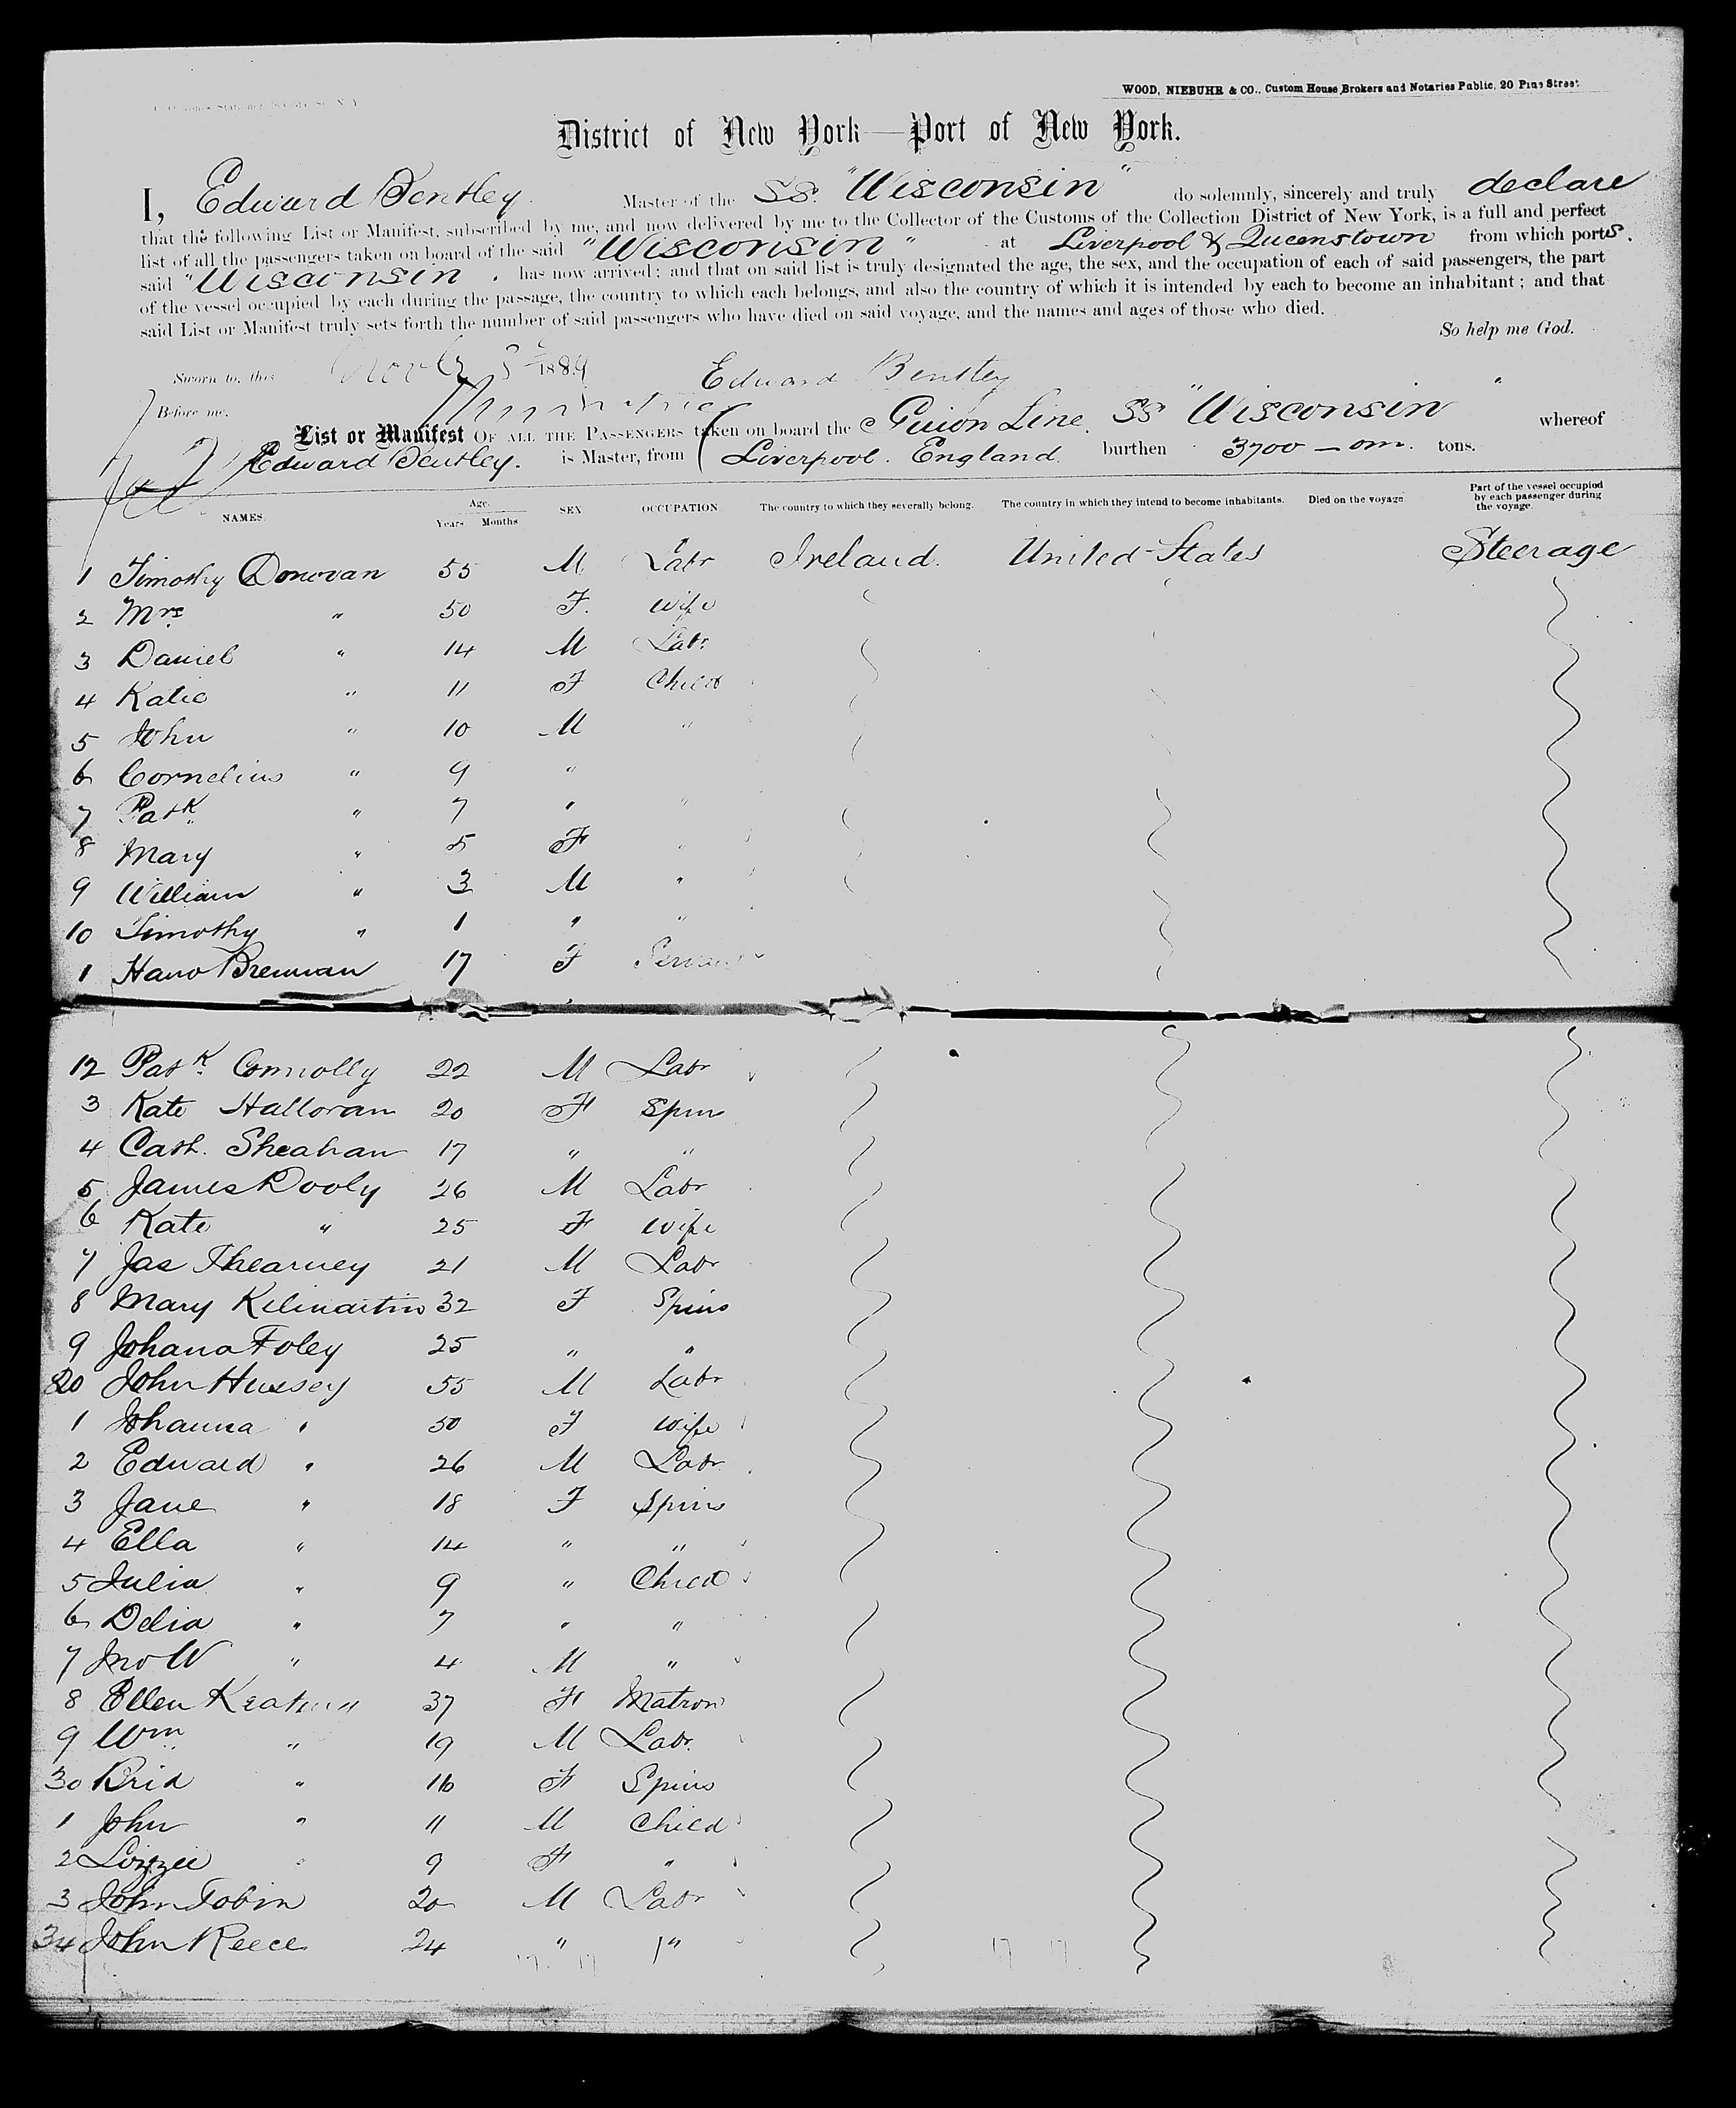 WOOD, NIEBUHR & CO., Custom House Brokers and Notaries Public, 20 Pine Street
District of New York—Port of New York.
I, Edward Bentley Master of the SS. "Wisconsin" do solemnly, sincerely and truly declare
that the following List or Manifest, subscribed by me, and now delivered by me to the Collector of the Customs of the Collection District of New York, is a full and perfect
list of all the passengers taken on board of the said "Wisconsin" at Liverpool & Queenstown from which ports.
said "Wisconsin". has now arrived; and that on said list is truly designated the age, the sex, and the occupation of each of said passengers, the part
of the vessel occupied by each during the passage, the country to which each belongs, and also the country of which it is intended by each to become an inhabitant; and that
said List or Manifest truly sets forth the number of said passengers who have died on said voyage, and the names and ages of those who died.
So help me God.
Sworn to, this 1889 Edward Bentley
Before me,
List or Manifest OF ALL THE PASSENGERS taken on board the Guion Line. SS "Wisconsin" whereof
Edward Bentley. is Master, from Liverpool. England. burthen 3700 tons.
NAMES. Age. Years Months SEX. OCCUPATION. The country to which they severally belong. The country in which they intend to become inhabitants. Died on the voyage Part of the vessel occupied by each passenger during the voyage.
1 Timothy Donovan 55 M Labr Ireland. United States Steerage
2 Mrs " 50 F. Wife
3 Daniel " 14 M Labr
4 Katie " 11 F Child
5 John " 10 M "
6 Cornelius " 9 "
7 Patk " 7 " "
8 Mary " 5 F "
9 William " 3 M "
10 Timothy " 1 " "
1 Brennan 17 F Servant
12 Patk Connolly 22 M Labr
3 Kate Halloran 20 F Spin
4 Cath. Sheahan 17 " "
5 James Dooly 26 M Labr
6 Kate " 25 F Wife
7 Jas 21 M Labr
8 Mary Kilmartin 32 F Spins
9 Johana Foley 25 " "
20 John Hussey 55 M Labr
1 Johanna " 50 F Wife
2 Edward " 26 M Labr
3 Jane " 18 F Spins
4 Ella " 14 " "
5 Julia " 9 " Child
6 Delia " 7 " "
7 Jno W " 4 M "
8 Ellen Keating 37 F Matron
9 Wm " 19 M Labr.
30 Brid " 16 F Spins
1 John " 11 M Child
2 Lizzie " 9 F "
3 John Tobin 20 M Labr
34 John Reece 24 " "